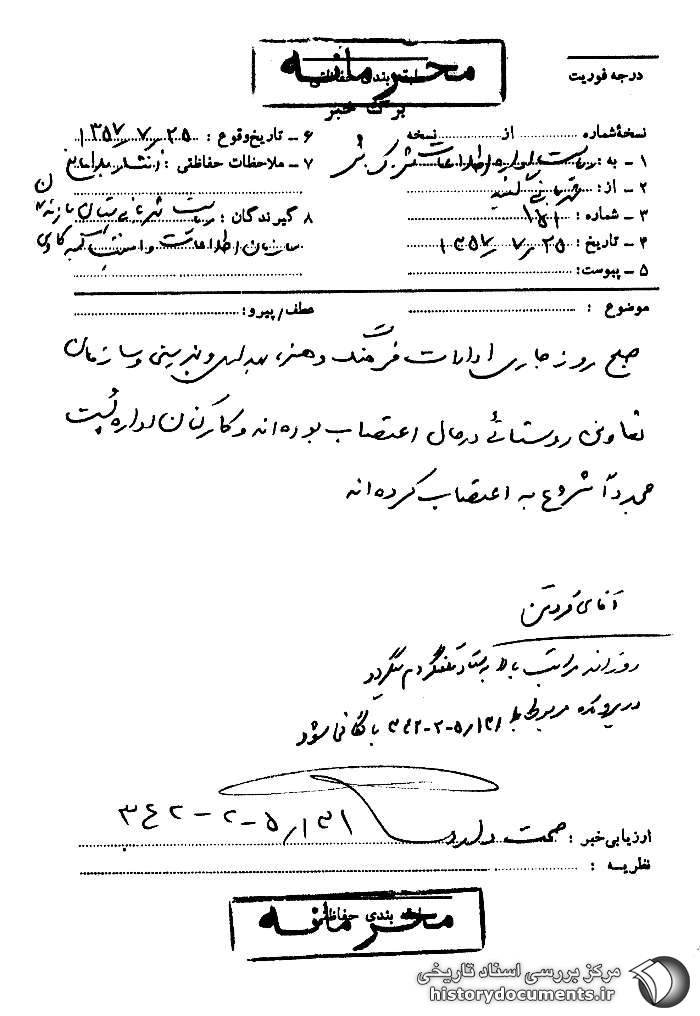 محرمانه
طبقه بندی حفاظتی
درجه فوریت
برگ خبر
نسخهٔ شماره از نسخه
۱ – به : ریاست اداره اطلاعات
۲ – از : شهربانی
۳ – شماره : ۱۸۱
۴ – تاریخ : ۱۳۵۷/۷/۲۵
۵ – پیوست:
۶ – تاریخ وقوع : ۱۳۵۷/۷/۲۵
۷ – ملاحظات حفاظتی :
۸ گیرندگان : ریاست شهربانی
سازمان اطلاعات و امنیت
موضوع :
عطف/پیرو:
صبح روز جاری ادارات فرهنگ و هنر، بهداری و بهزیستی و سازمان
تعاون روستائی در حال اعتصاب بوده‌اند و کارکنان اداره پست
مجدداً شروع به اعتصاب کرده‌اند
آقای
روزانه مراتب با
در پرونده مربوط با ۳۴۲-۲-۵/۱۳۱ بایگانی شود
ارزیابی خبر : صحت دارد ۳۴۲-۲-۵/۱۳۱
نظریه :
محرمانه
طبقه بندی حفاظتی
مرکز بررسی اسناد تاریخی
historydocuments.ir